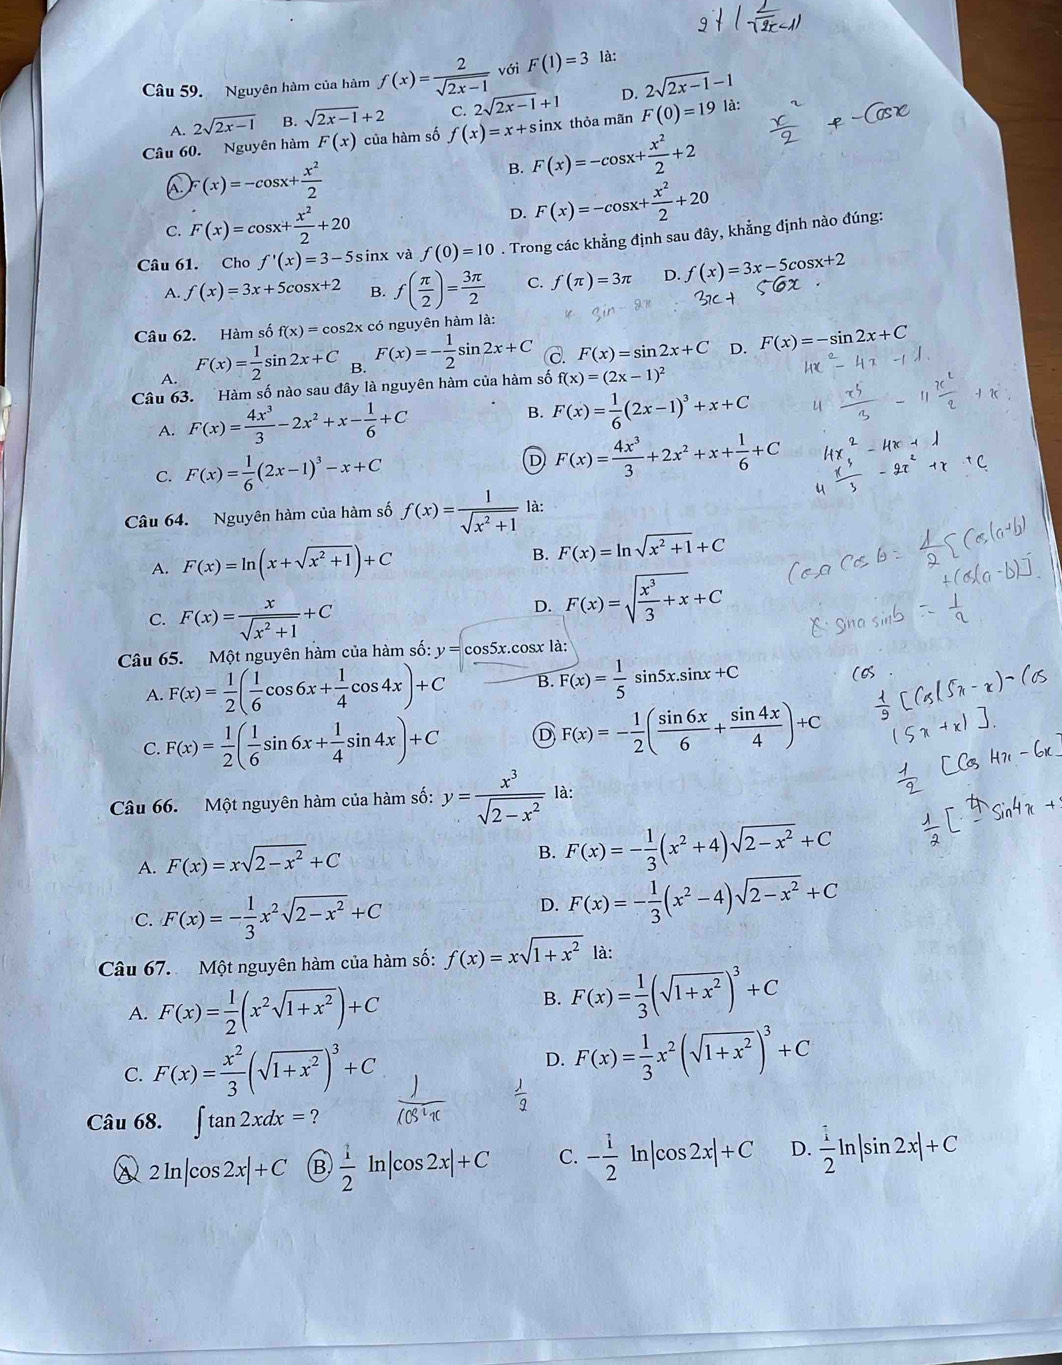 Câu 59. Nguyên hàm của hàm f(x) = 2/√(2x−1) với F(1) = 3 là:
A. 2√(2x−1) B. √(2x−1) + 2 C. 2√(2x−1) + 1 D. 2√(2x−1) − 1
Câu 60. Nguyên hàm F(x) của hàm số f(x) = x + sinx thỏa mãn F(0) = 19 là:
x²/2 + −cosx
A. F(x) = −cosx + x²/2 B. F(x) = −cosx + x²/2 + 2
C. F(x) = cosx + x²/2 + 20 D. F(x) = −cosx + x²/2 + 20
Câu 61. Cho f'(x) = 3 − 5sinx và f(0) = 10. Trong các khẳng định sau đây, khẳng định nào đúng:
A. f(x) = 3x + 5cosx + 2 B. f(π/2) = 3π/2 C. f(π) = 3π D. f(x) = 3x − 5cosx + 2
Câu 62. Hàm số f(x) = cos2x có nguyên hàm là:
A. F(x) = 1/2 sin2x + C B. F(x) = −1/2 sin2x + C C. F(x) = sin2x + C D. F(x) = −sin2x + C
Câu 63. Hàm số nào sau đây là nguyên hàm của hàm số f(x) = (2x − 1)²
A. F(x) = 4x³/3 − 2x² + x − 1/6 + C B. F(x) = 1/6 (2x − 1)³ + x + C
C. F(x) = 1/6 (2x − 1)³ − x + C D. F(x) = 4x³/3 + 2x² + x + 1/6 + C
4x² − 4x + 1
4 x³/3 − 2x² + x + C
Câu 64. Nguyên hàm của hàm số f(x) = 1/√(x² + 1) là:
A. F(x) = ln(x + √(x² + 1)) + C B. F(x) = ln√(x² + 1) + C
cosa cos b = 1/2 [cos(a+b)
+ cos(a−b)].
C. F(x) = x/√(x² + 1) + C D. F(x) = √(x³/3 + x) + C
sina sinb = 1/2
Câu 65. Một nguyên hàm của hàm số: y = cos5x.cosx là:
A. F(x) = 1/2 (1/6 cos6x + 1/4 cos4x) + C B. F(x) = 1/5 sin5x.sinx + C
cos
1/2 [cos(5x − x) − cos
(5x + x)].
C. F(x) = 1/2 (1/6 sin6x + 1/4 sin4x) + C D. F(x) = −1/2 (sin6x/6 + sin4x/4) + C
1/2 [cos 4x − 6x]
Câu 66. Một nguyên hàm của hàm số: y = x³/√(2 − x²) là:
A. F(x) = x√(2 − x²) + C B. F(x) = −1/3 (x² + 4)√(2 − x²) + C
C. F(x) = −1/3 x²√(2 − x²) + C D. F(x) = −1/3 (x² − 4)√(2 − x²) + C
Câu 67. Một nguyên hàm của hàm số: f(x) = x√(1 + x²) là:
A. F(x) = 1/2 (x²√(1 + x²)) + C B. F(x) = 1/3 (√(1 + x²))³ + C
C. F(x) = x²/3 (√(1 + x²))³ + C D. F(x) = 1/3 x² (√(1 + x²))³ + C
1/cos²x 1/2
Câu 68. ∫ tan 2xdx = ?
A. 2 ln|cos2x| + C B. 1/2 ln|cos2x| + C C. −1/2 ln|cos2x| + C D. 1/2 ln|sin2x| + C